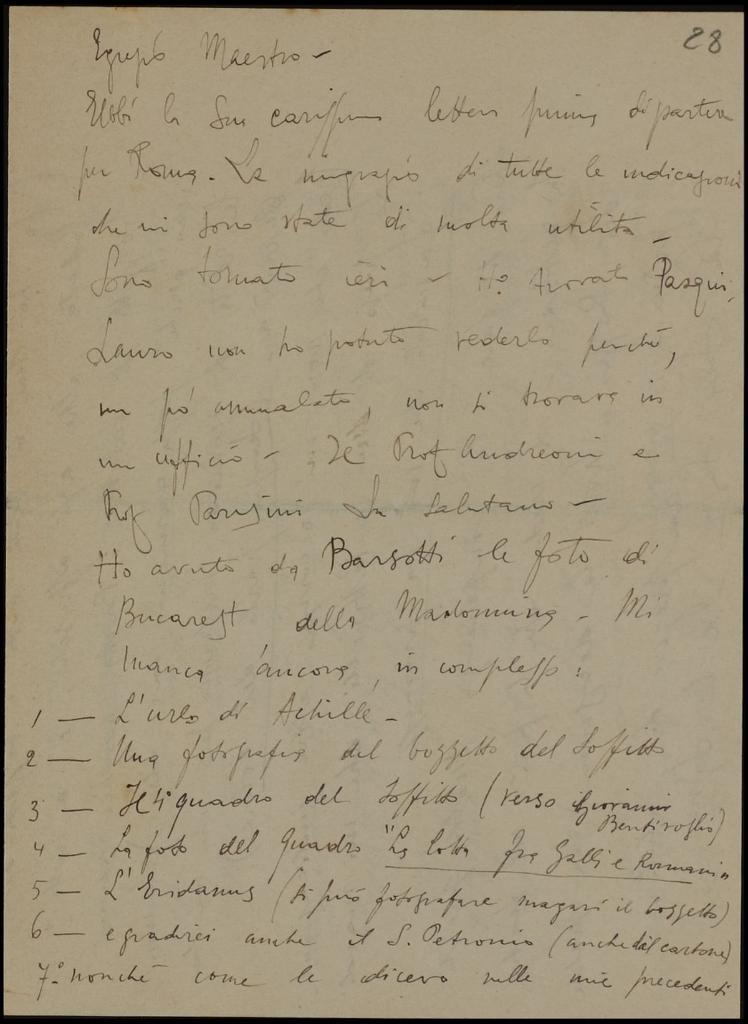 28
Egregio Maestro –
Ebbi la Sua carissima lettera prima di partire
per Roma. La ringrazio di tutte le indicazioni
che mi sono state di molta utilità –
Sono tornato ieri – Ho trovato Pasqui,
Lauro non ho potuto vederlo perché,
un pó ammalato, non si trovava in
un ufficio – Il Prof Andreoni e
Prof Parisini La salutano –
Ho avuto da Bargotti le foto di
Bucarest della Madonnina – Mi
manca áncora, in complesso:
1 — L'urlo di Achille –
2 — Una fotografia del bozzetto del Soffitto
3 — Il quadro del Soffitto (verso Giovanni
Bentivoglio)
4 — La foto del quadro "La lotta fra Galli e Romani"
5 — L'Eridanus (si può fotografare magari il bozzetto)
6 — e gradirei anche il S. Petronio (anche dal cartone)
7° nonché come le dicevo nelle mie precedenti